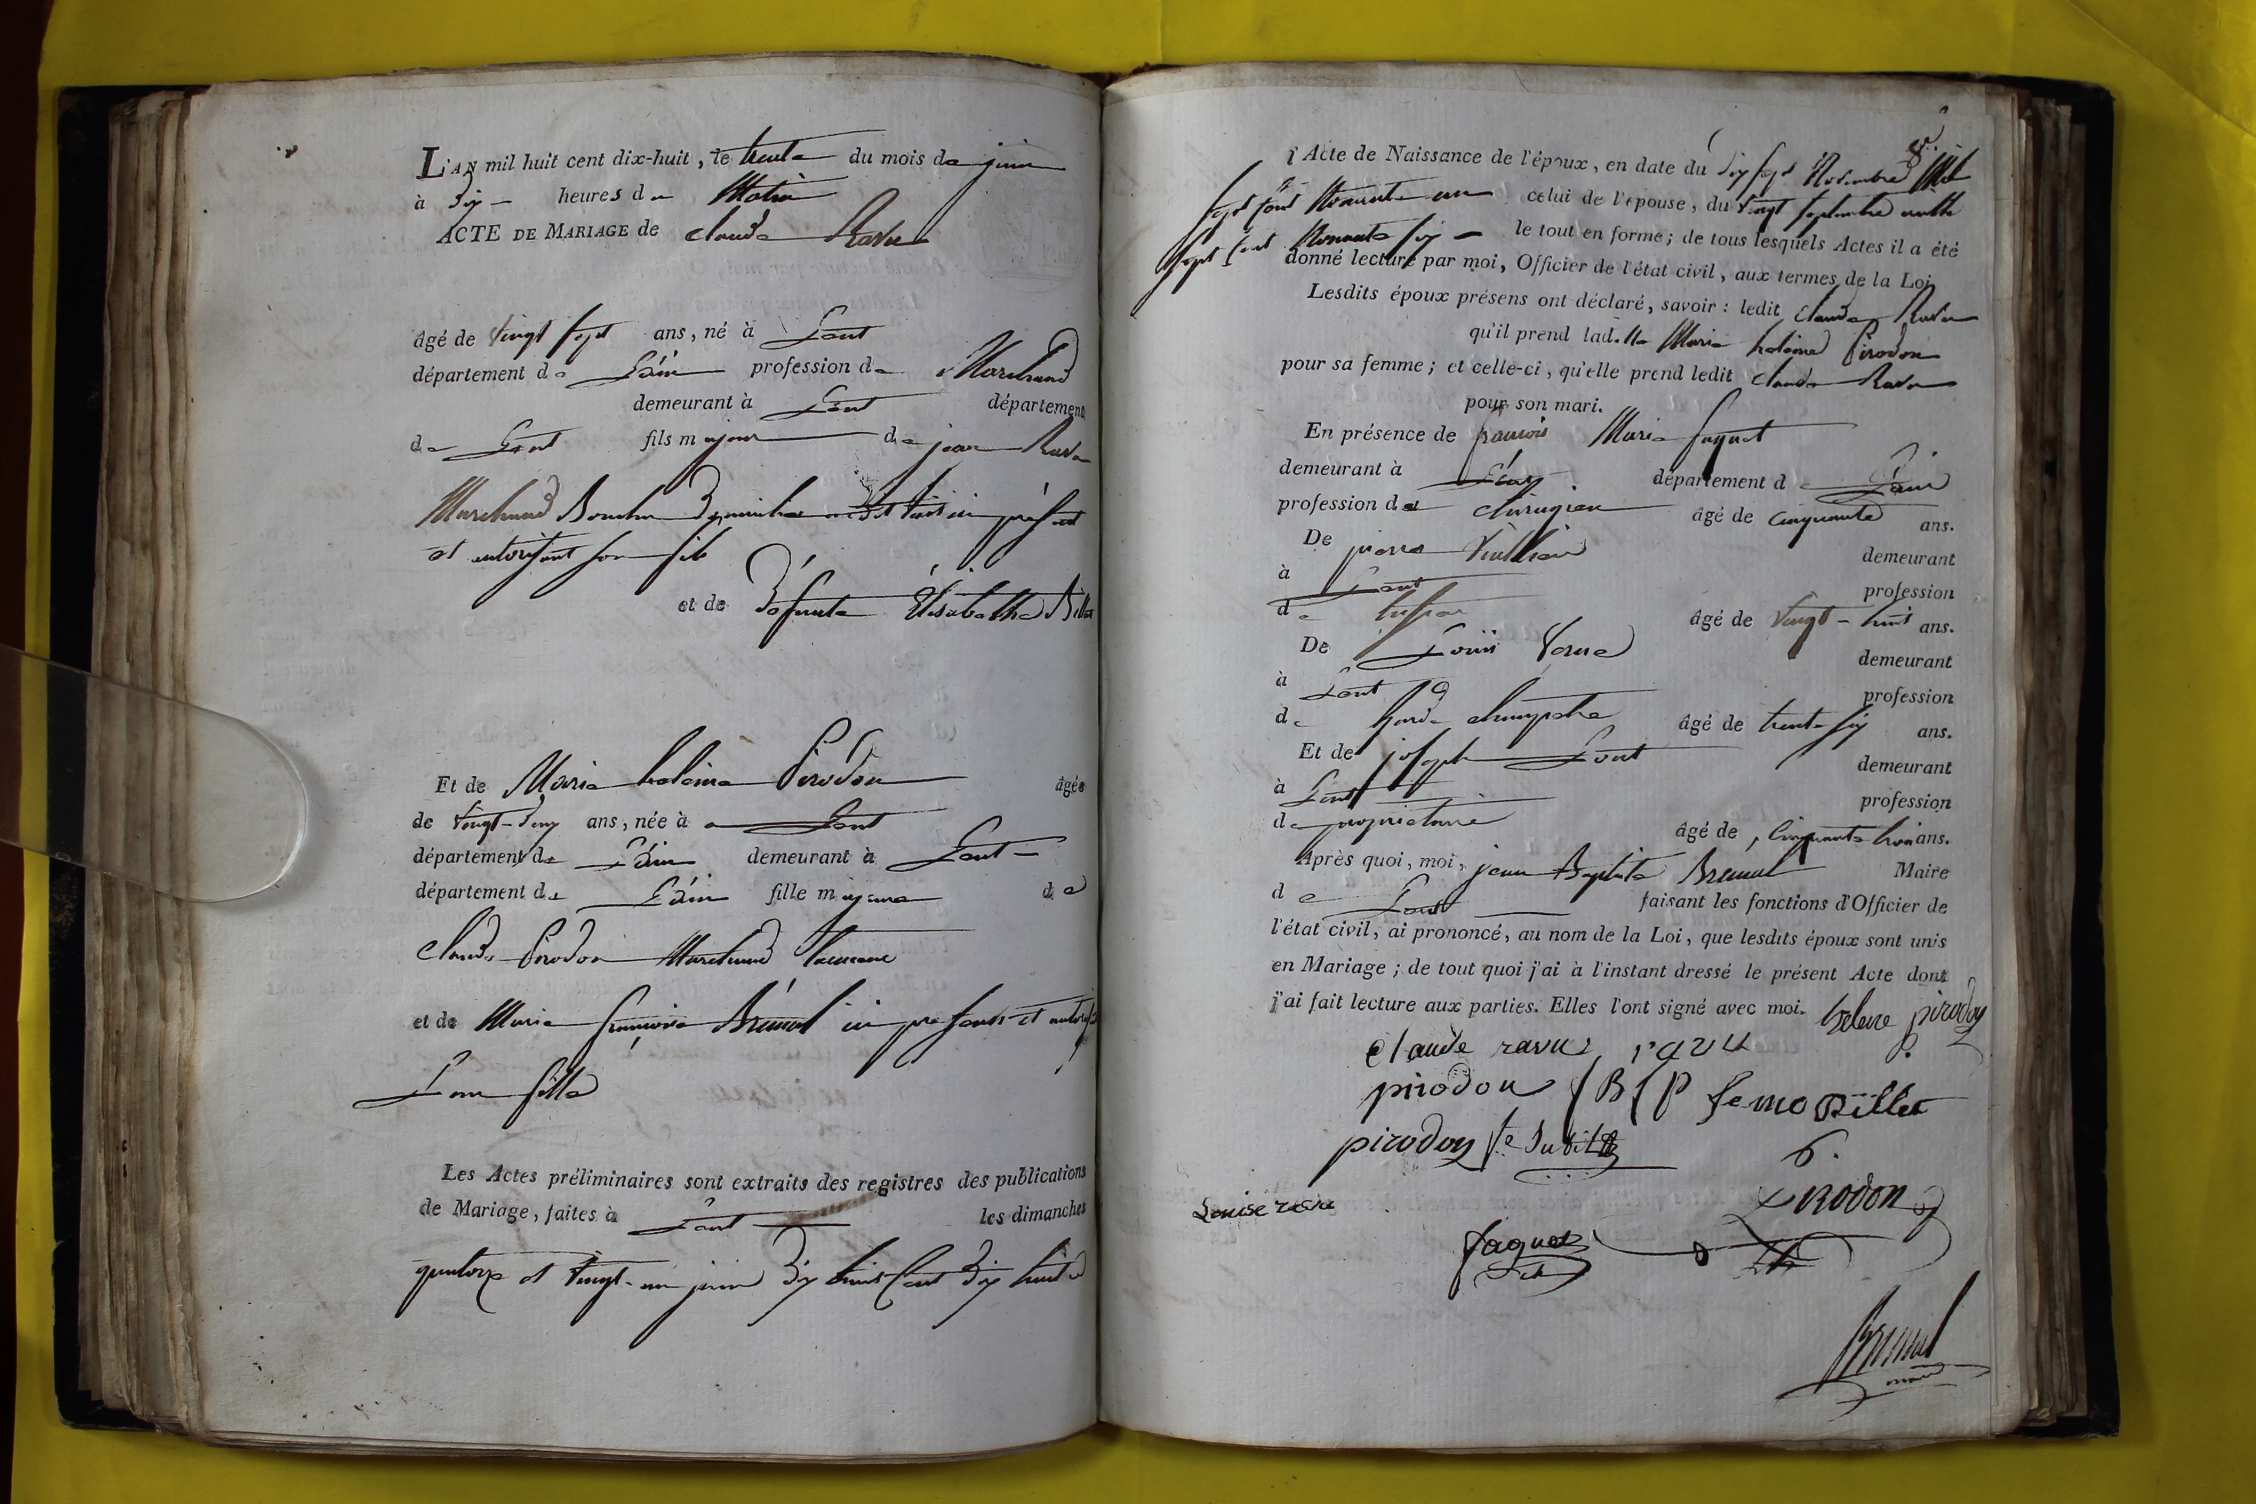 L'AN mil huit cent dix-huit, le trente du mois de juin
à dix heures du Matin
ACTE DE MARIAGE de claude Ravu
âgé de vingt sept ans, né à Lent
département de L'ain profession de Marchand
demeurant à Lent département
de Lent fils majeur de jean Ravu
Marchand Boucher Domicilié ici présent
et autorisant son fils
et de Défunte Elisabethe Billet
Et de Marie heleine Pirodon âgée
de vingt-deux ans, née à Lent
département de L'ain demeurant à Lent
département de L'ain fille majeure de
Claude Pirodon Marchand Tanneur
et de Marie françoise Brunal ici présents et autoris
Leur fille
Les Actes préliminaires sont extraits des registres des publications
de Mariage, faites à Lent les dimanches
quatorze et vingt-un juin dix huit Cent dix huit
l'Acte de Naissance de l'époux, en date du dix sept Novembre Mil
sept Cent Nonante un celui de l'épouse, du vingt septembre mille
sept Cent Nonante six le tout en forme; de tous lesquels Actes il a été
donné lecture par moi, Officier de l'état civil, aux termes de la Loi.
Lesdits époux présens ont déclaré, savoir: ledit claude Ravu
qu'il prend lad.tte Marie heleine Pirodon
pour sa femme; et celle-ci, qu'elle prend ledit claude Ravu
pour son mari.
En présence de francois Marie faguet
demeurant à Lent département de L'ain
profession de chirugien âgé de cinquante ans.
De pierre demeurant
à Lent profession
de âgé de vingt-huit ans.
De Louis Verne demeurant
à Lent profession
de garde champetre âgé de trente six ans.
Et de joseph Lent demeurant
à Lent profession
de proprietaire âgé de Cinquante trois ans.
Après quoi, moi, jean Baptiste Brunal Maire
de Lent faisant les fonctions d'Officier de
l'état civil, ai prononcé, au nom de la Loi, que lesdits époux sont unis
en Mariage; de tout quoi j'ai à l'instant dressé le présent Acte dont
j'ai fait lecture aux parties. Elles l'ont signé avec moi. helene pirodon
claude ravu ravu
pirodon fBfP femo Billet
pirodon
Pirodon
Louise
faguet
Brunal
maire